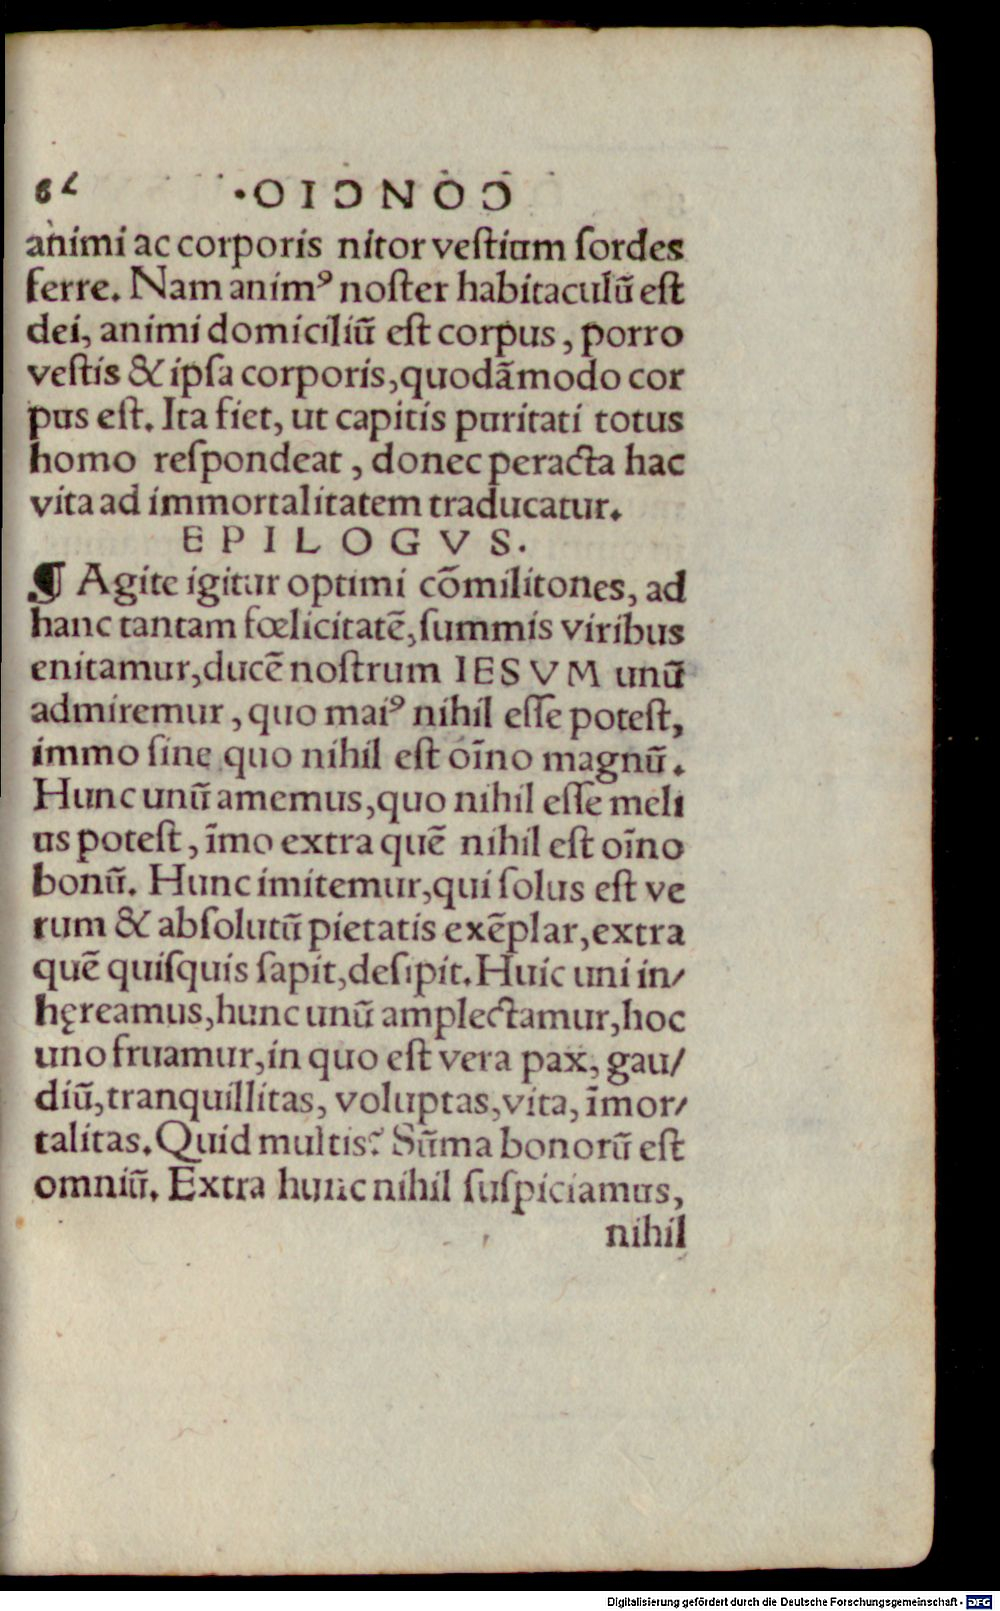 CONCIO.
animi ac corporis nitor veſtium ſordes
ferre. Nam animꝰ noſter habitaculũ eſt
dei, animi domiciliũ eſt corpus, porro
veſtis & ipſa corporis, quodãmodo cor
pus eſt. Ita fiet, ut capitis puritati totus
homo reſpondeat, donec peracta hac
vita ad immortalitatem traducatur.
EPILOGVS.
¶ Agite igitur optimi cõmilitones, ad
hanc tantam fœlicitatẽ, ſummis viribus
enitamur, ducẽ noſtrum IESVM unũ
admiremur, quo maiꝰ nihil eſſe poteſt,
immo ſine quo nihil eſt oĩno magnũ.
Hunc unũ amemus, quo nihil eſſe meli
us poteſt, ĩmo extra quẽ nihil eſt oĩno
bonũ. Hunc imitemur, qui ſolus eſt ve
rum & abſolutũ pietatis exẽplar, extra
quẽ quiſquis ſapit, deſipit. Huic uni in/
hęreamus, hunc unũ amplectamur, hoc
uno fruamur, in quo eſt vera pax, gau/
diũ, tranquillitas, voluptas, vita, ĩmor/
talitas. Quid multis? Sũma bonorũ eſt
omniũ. Extra hunc nihil ſuſpiciamus,
nihil
Digitalisierung gefördert durch die Deutsche Forschungsgemeinschaft - DFG